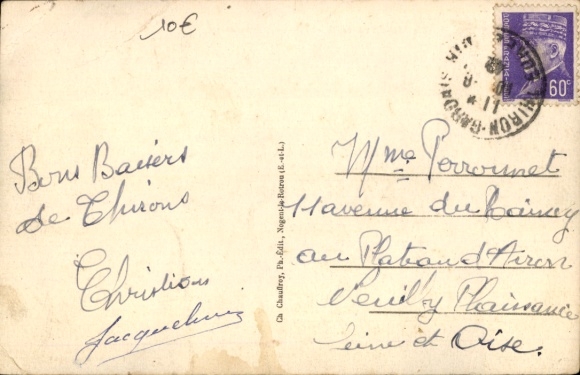 10€
Bons Baisers
de Thirons
Christiane
Jacqueline
Ch Chauffroy, Ph.-Édit., Nogent-le-Rotrou (E.-et-L.)
60c
THIRON-GARDAIS
Mme Perronnet
11 avenue du Raincy
au Plateau d'Avron
Neuilly Plaisance
Seine et Oise.